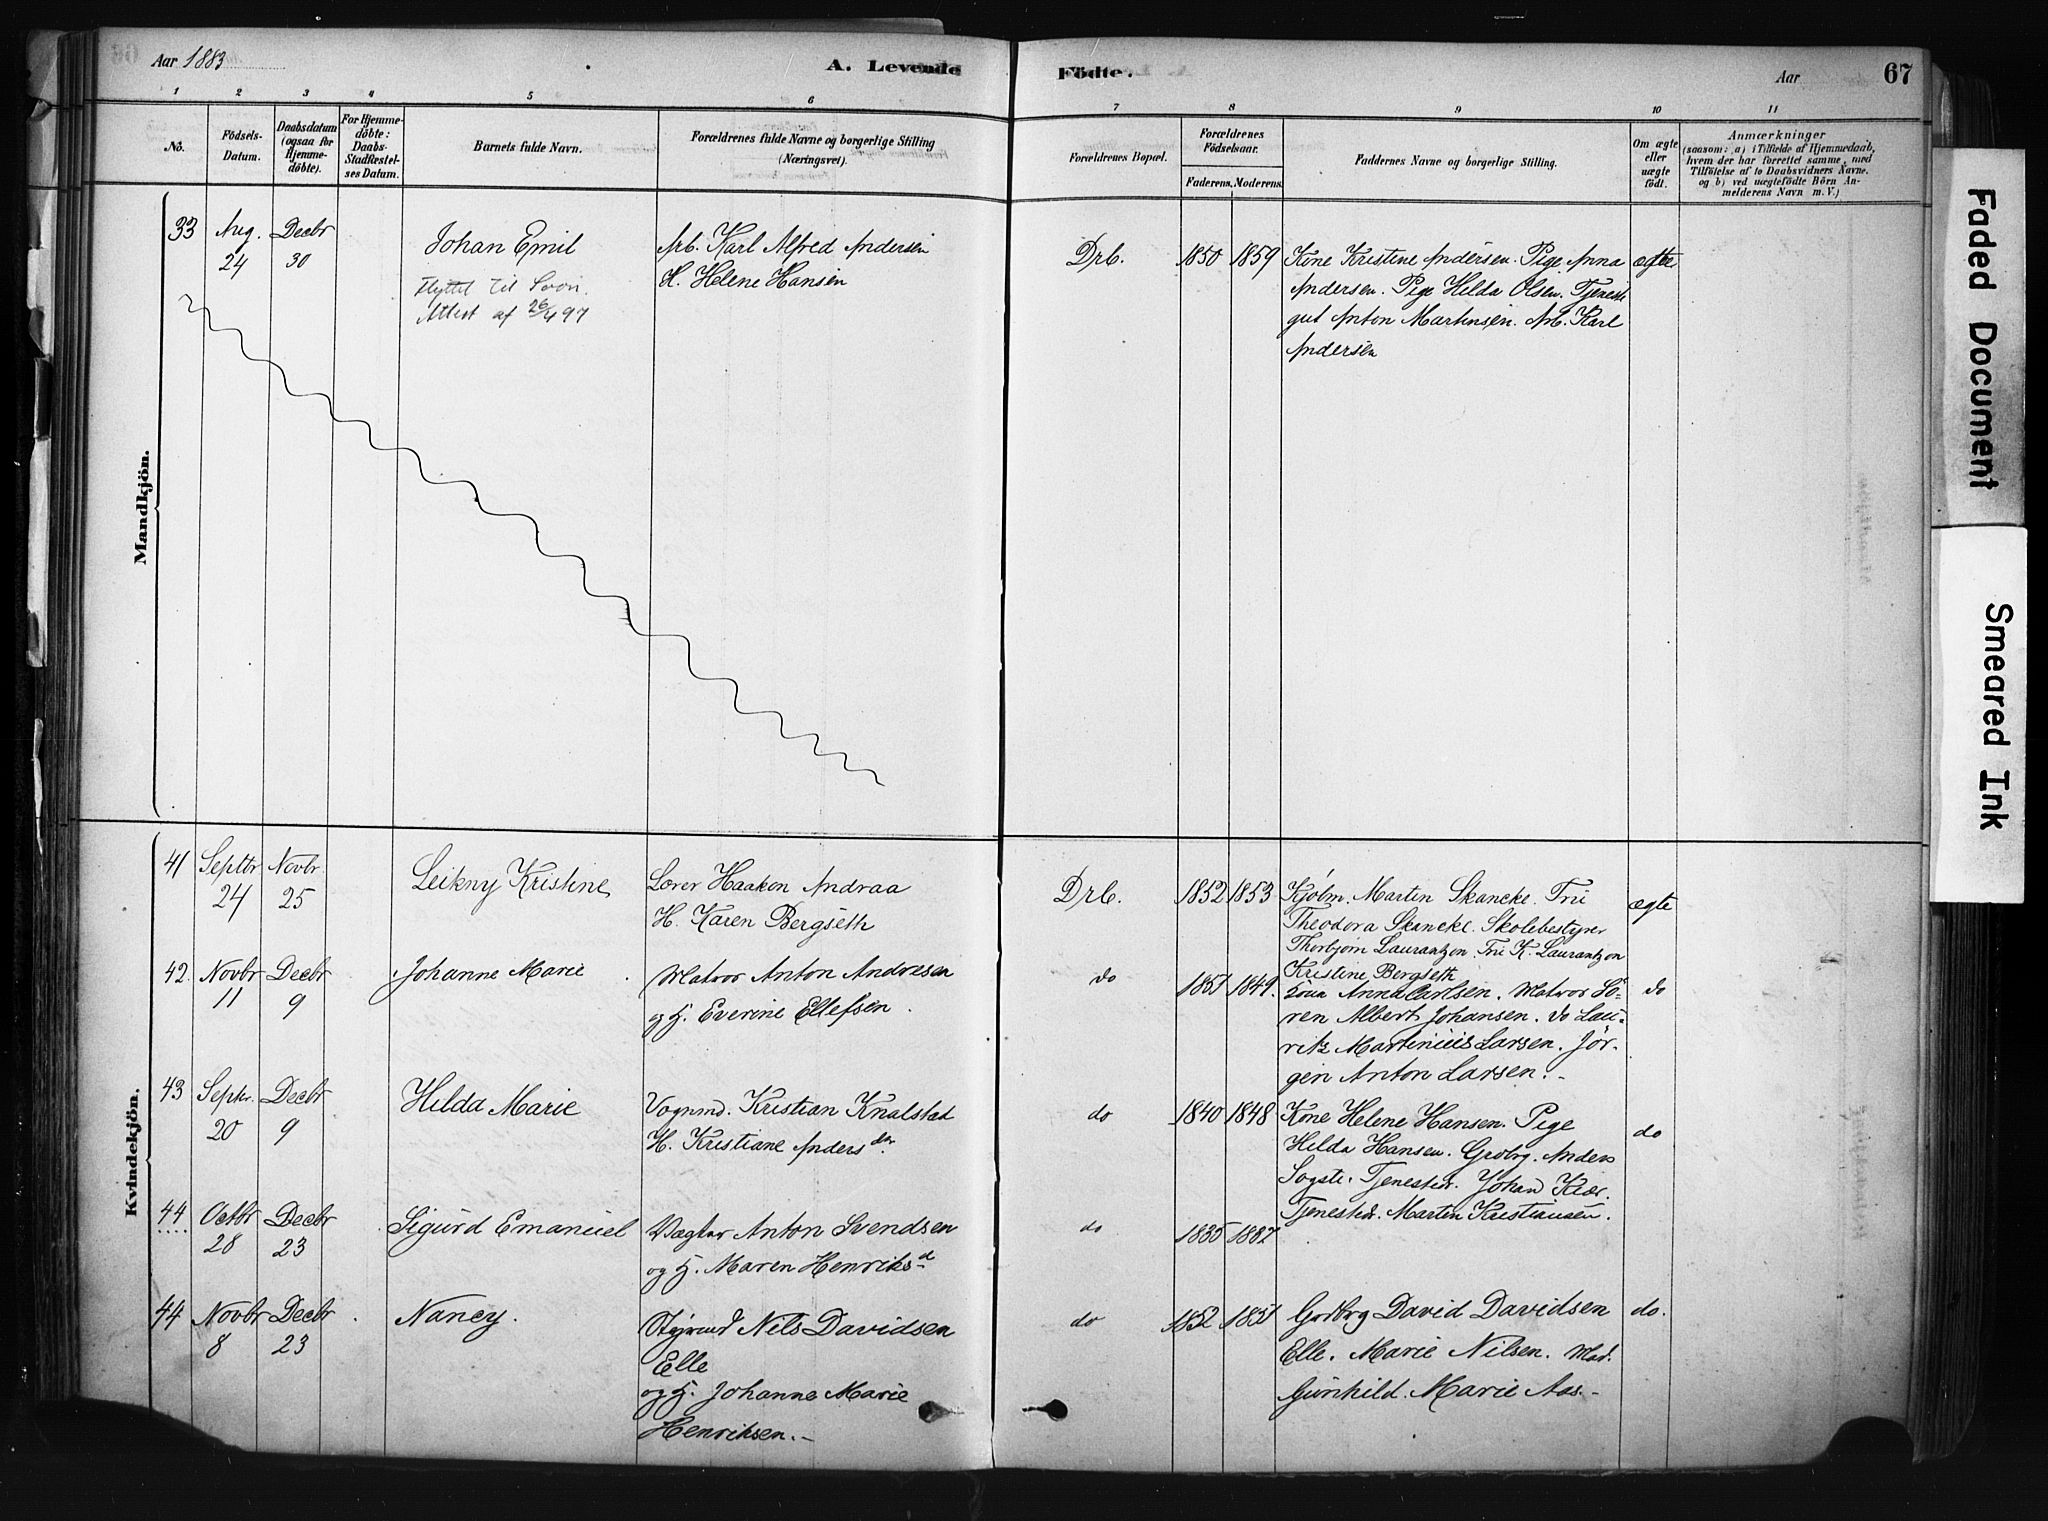 Aar 1883
A. Levende
Födte.
Aar
67
1 2 3 4 5 6 7 8 9 10 11
No.
Födsels-
Datum.
Daabsdatum
(ogsaa for
Hjemme-
döbte).
For Hjemme-
döbte:
Daabs-
Stadfæstel-
ses Datum.
Barnets fulde Navn.
Forældrenes fulde Navne og borgerlige Stilling
(Næringsvei).
Forældrenes Bopæl.
Forældrenes
Födselsaar.
Faderens. Moderens.
Faddernes Navne og borgerlige Stilling.
Om ægte
eller
uægte
födt.
Anmærkninger
(saasom: a) i Tilfælde af Hjemmedaab,
hvem der har forrettet samme, med
Tilföielse af to Daabsvidners Navne.
og b) ved uægtefödte Börn An-
melderens Navn m. V.)
Mandkjön.
33
Aug.
24
Decbr
30
Johan Emil
Flyttet til
Attest af 26/4 97
Arb. Karl Alfred Andersen
H. Helene Hansen
Drb.
1850 1859
Kone Kristine Andersen. Pige Anna
Andersen. Pige Hilda Olsen. Tjeneste
gut Anton Martinsen. Arb. Karl
Andersen
ægte
Kvindekjön.
41
Septbr
24
Novbr.
25
Leikny Kristine
Lærer Haakon Andraa
H. Karen Bergseth
Drb.
1852 1853
Kjøbm. Martin Skancke. Fru
Theodora Skancke. Skolebestyrer
Thorbjørn Laurantzon. Fru K. Laurantzon
Kristine Bergseth
ægte
42.
Novbr
11
Decbr
9
Johanne Marie
Matros Anton Andresen
og H. Everine Ellefsen.
do
1851 1849.
Kona Anna Carlsen. Matros Sö-
ren Albert Johansen. do Lau-
ritz Martinius Larsen. Jör-
gen Anton Larsen.-
do
43
Septr.
20
Decbr
9
Hilda Marie
Vognmd. Kristian Knalstad
H. Kristiane Andersdr.
do
1840 1848
Kone Helene Hansen. Pige
Hilda Hansen. Grdbrg. Anders
Sogsti. Tjenestedr. Johan Kiær.
Tjenestedr. Martin Kristiansen.
do
44
Octbr
28
Decbr
23
Sigurd Emanuel
Vægter Anton Svendsen
og H. Maren Henriksd
do
1835 1837
44
Novbr
8
Decbr
23
Nancy.
Styrmd Nils Davidsen
Elle
og H. Johanne Marie
Henriksen.-
do
1852 1851
Grdbrg David Davidsen
Elle. Marie Nilsen. Mad.
Gunhild. Marie Aas.-
do.
Faded Document
Smeared Ink